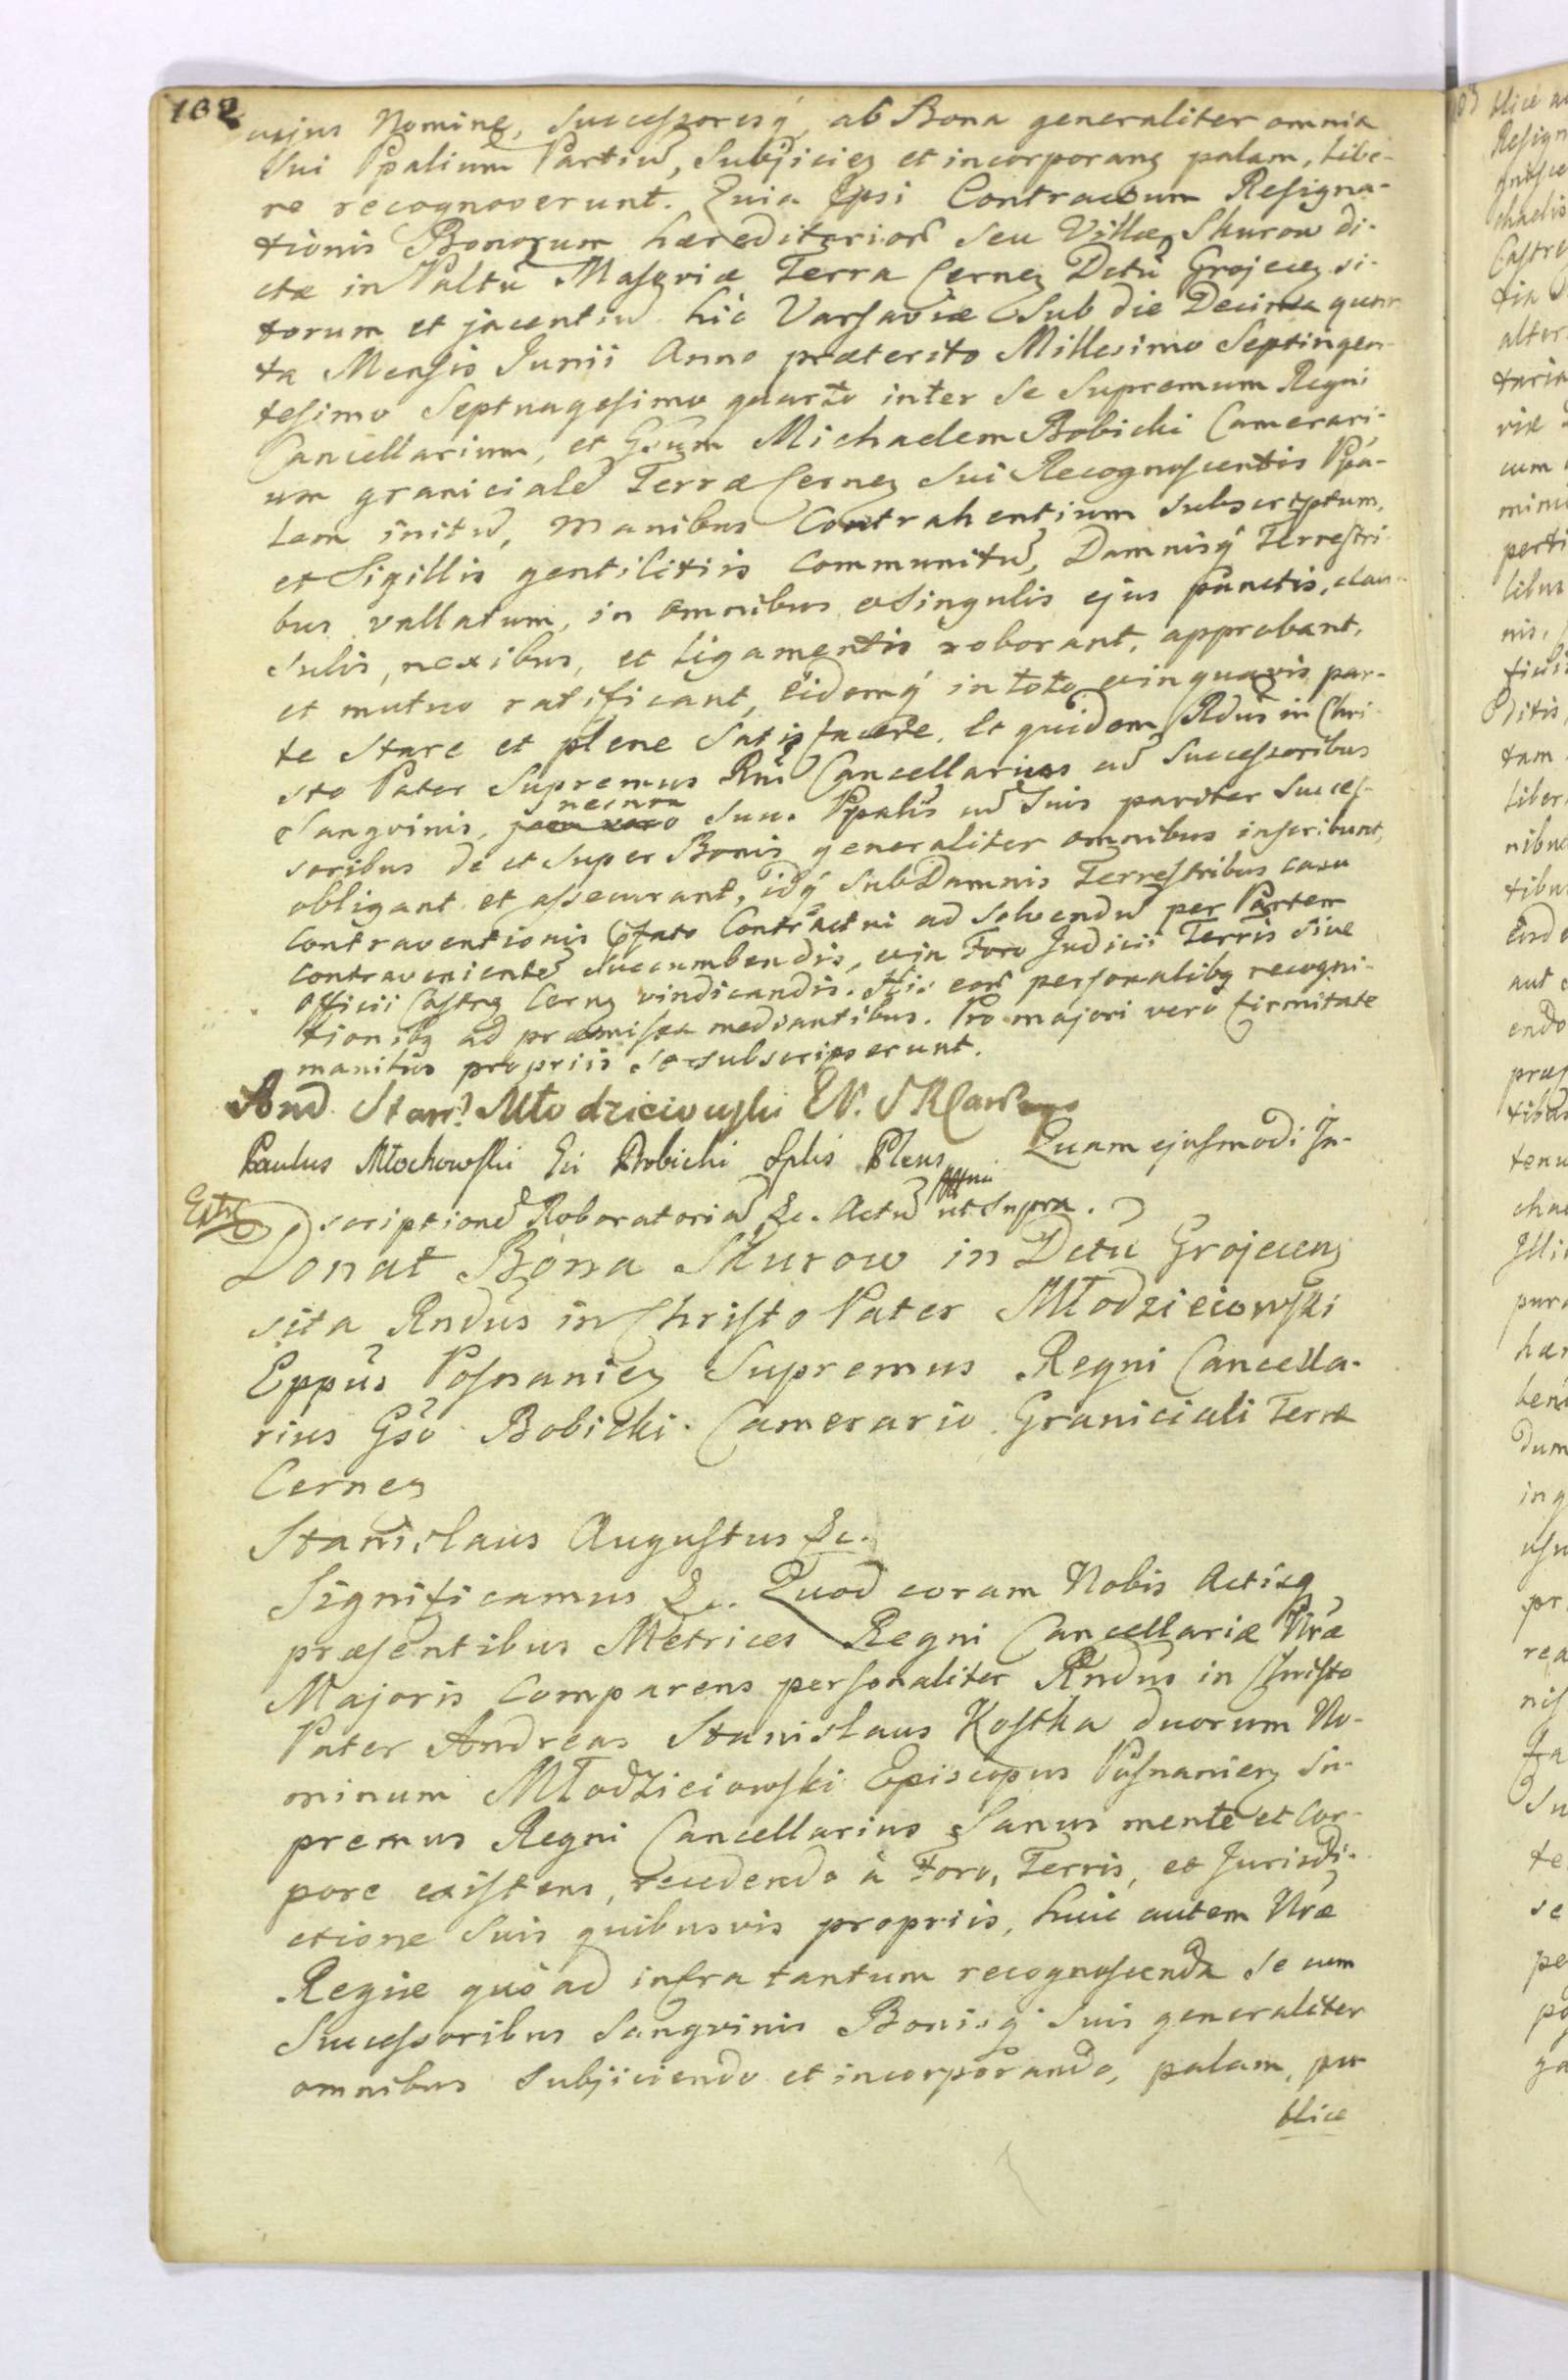 102
cujus Nomine, Successoresq́, ab Bona generaliter omnia
Sui Ppalium Partiū, Subjiciez et incorporanz palam, libe-
re recognoverunt. Quia Ipsi Contractum Resigna-
tionis Bonorum hæreditarior̃ seu Villæ Skurow di-
ctæ in Paltũ Masoviæ Terra Cernez Dctũ Grojecez si-
torum et jacentiũ hic Varsaviæ Sub die Decima quar-
ta Mensis Junii Anno præterito Millesimo Septingen-
tesimo Septuagesimo quarto inter Se Supremum Regni
Cancellarium, et Gsum Michaelem Bobicki Camerari-
um granicialẽ Terræ Cernez Sui Recognoscentis Ppa-
lem initũ, manibus Contrahentium subscriptum,
et Sigillis gentilitiis Communitũ, Damnisq́ Terrestri-
bus vallatum, in omnibus et Singulis ejus punctis, clau-
sulis, nexibus, et ligamentis roborant, approbant,
et mutuo ratificant, eidemq́ in toto et in quavis par-
te Stare et plene Satisfacere. Et quidem Rdũs in Chri-
sto Pater Supremus Rni Cancellarius cũ Successoribus
Sangvinis, necnon suu. Ppalis cũ Suis pariter Succes-
soribus de et Super Bonis generaliter omnibus inscribunt,
obligant et assecurant, idq́ Sub Damnis Terrestribus casu
contraventionis pfato Contractui ad solvendũ per Partem
contravenientẽ succumbendis, et in Foro Judicii Terris sive
Officii Castrz Cernz vindicandis. His eor̃ personalibq recogni-
tionibq ad præmissa mediantibus. Pro majori vero firmitate
manibus propriis se subscripserunt.
And. Stan: Młodzieiowski EP. S R Canc
Paulus Młochowski Gi Bobicki Splis Plens Quam ejusmodi In-
scriptionẽ Roboratoriã &c. Actũ ut Supra.
Donat Bona Skurow in Dctũ Grojecenz
sita Rndũs in Christo Pater Młodzieiowski
Eppũs Posnaniez Supremus Regni Cancella-
rius Gsõ Bobicki Camerario Graniciali Terræ
Cernez
Stanislaus Augustus &c.
Significamus &c. Quod coram Nobis Actisq́
præsentibus Metrices Regni Cancellariæ Nræ
Majoris Comparens personaliter Rndũs in Christo
Pater Andreas Stanislaus Kostka duorum No-
minum Młodzieiowski Episcopus Posnaniez Su-
premus Regni Cancellarius Sanus mente et Cor-
pore existens, recedendo à Foro, Terris, et Jurisdi-
ctione Suis quibusvis propriis, huic autem Nræ
Regiæ quò ad infra tantum recognoscenda Se cum
Successoribus Sangvinis Bonisq́ Suis generaliter
omnibus Subjiciendo et incorporando, palam, pu-
blice